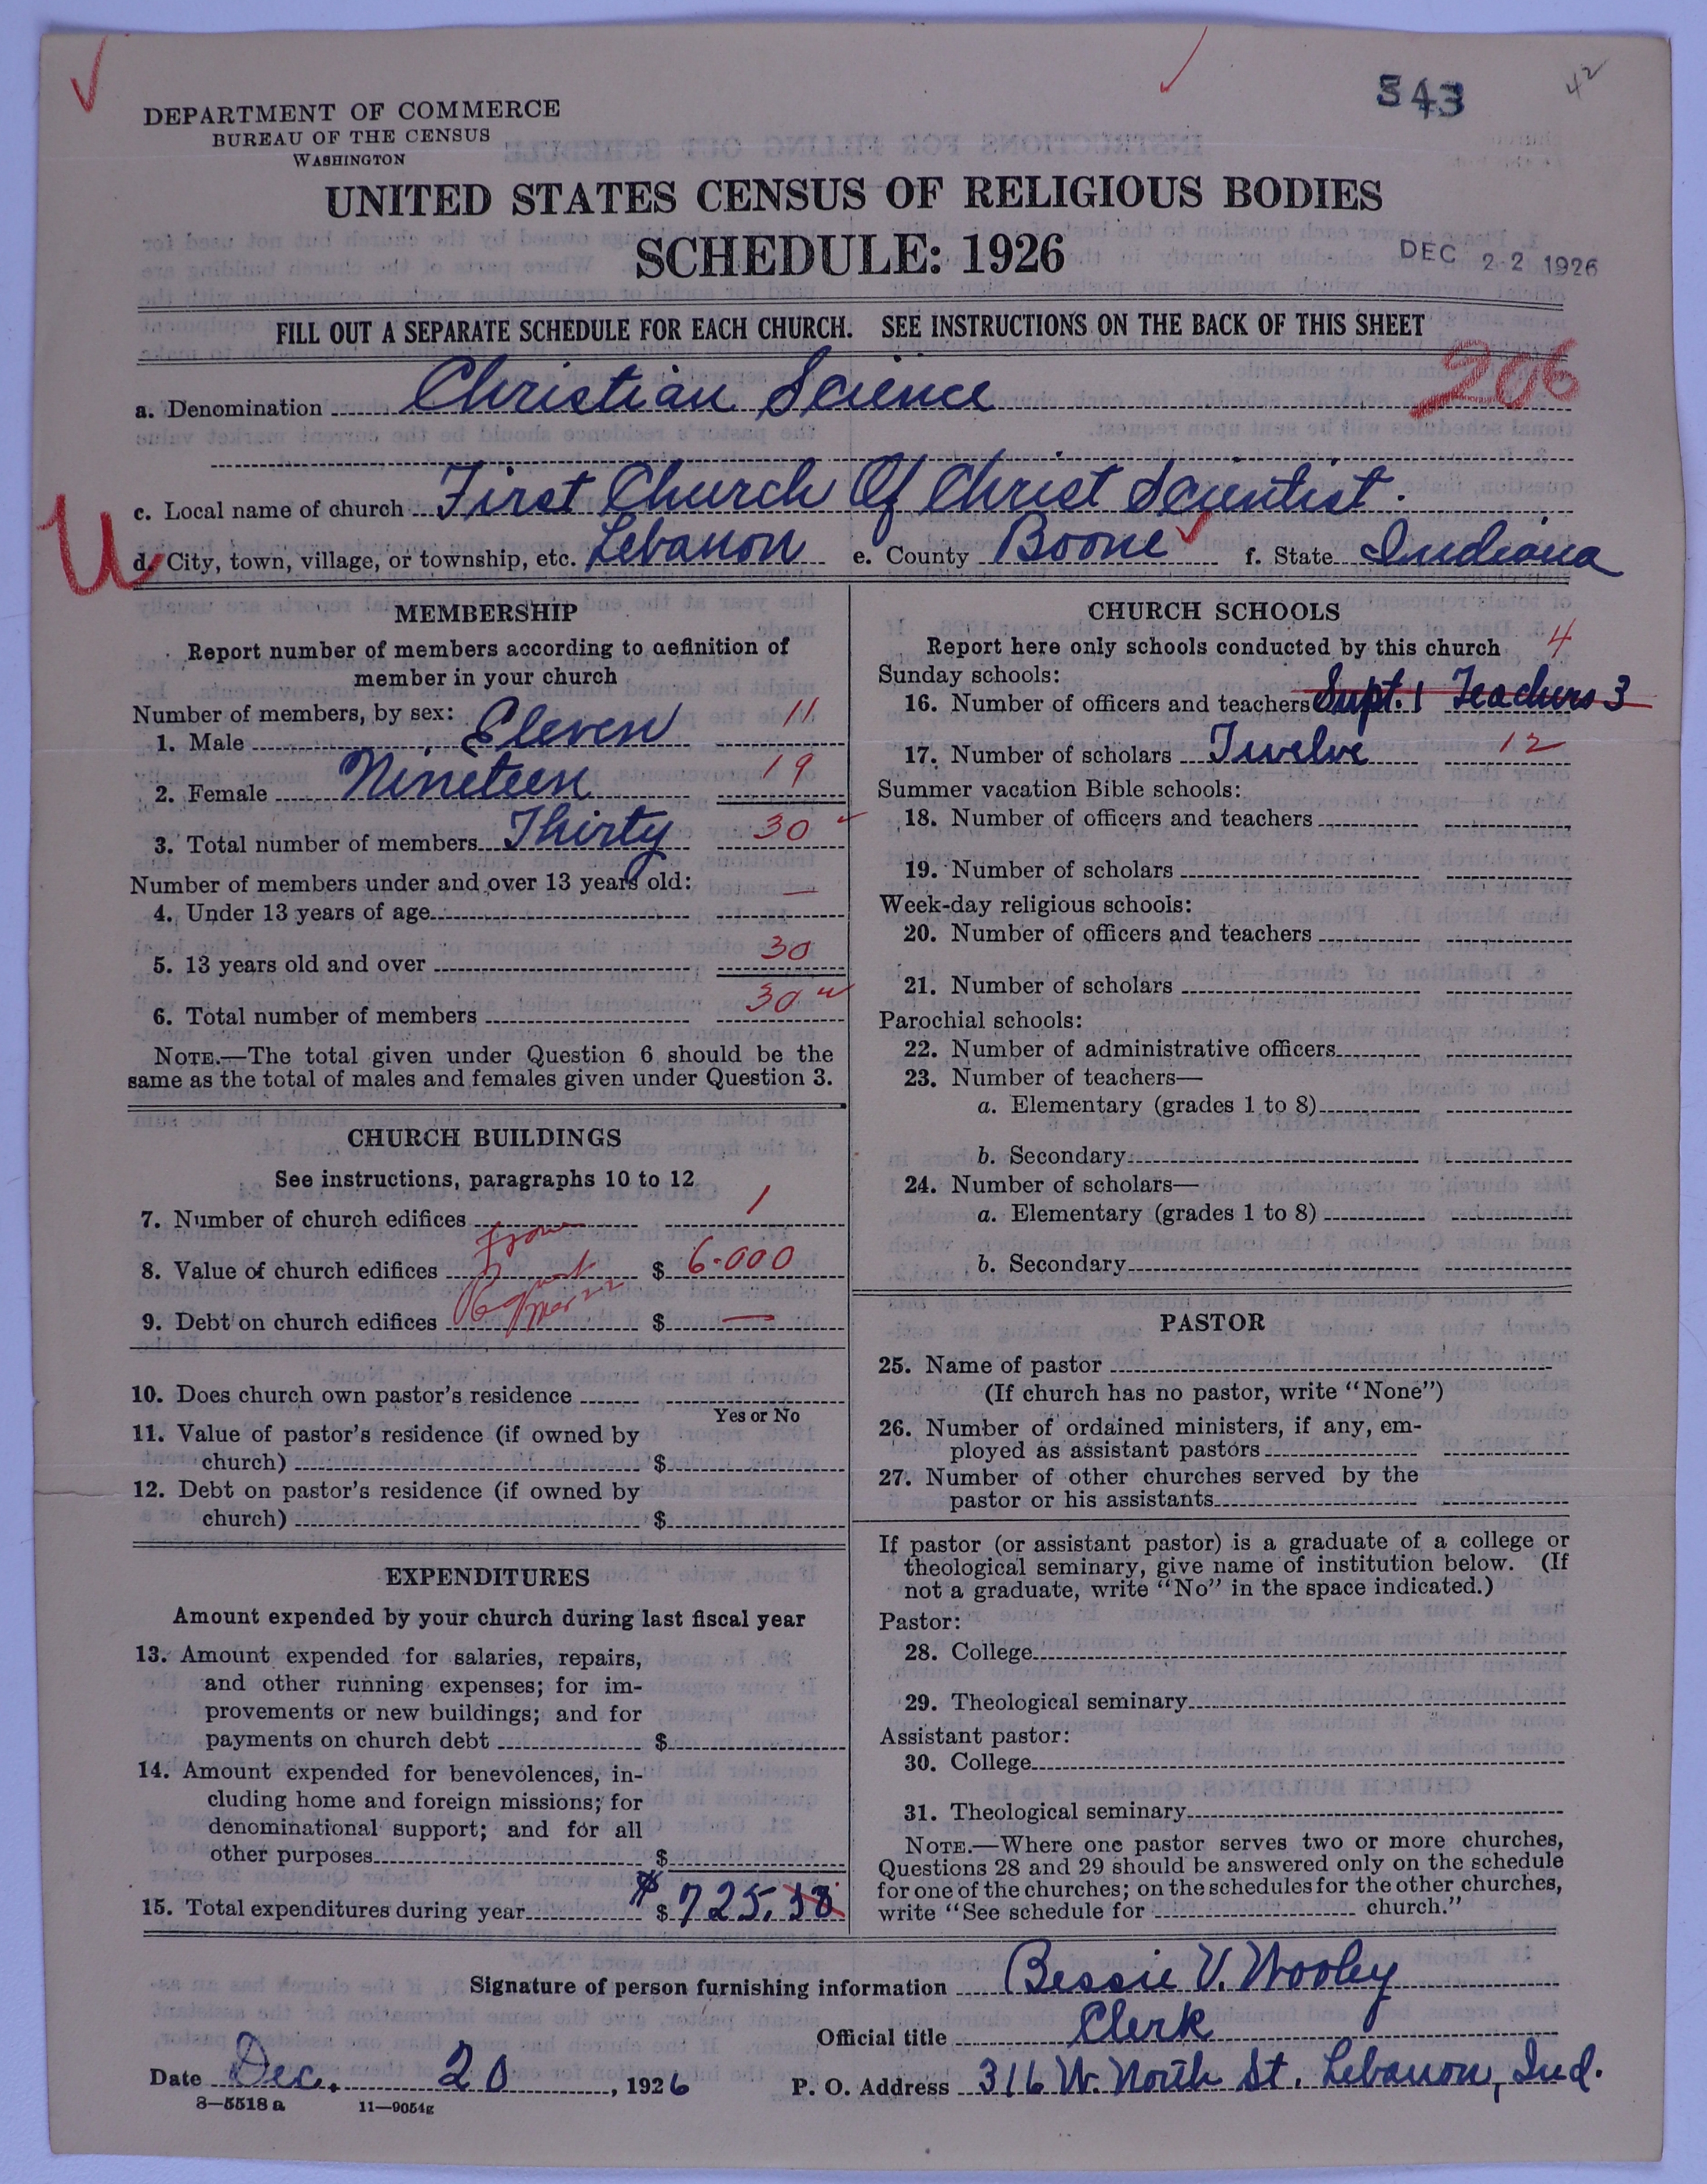 543
42
DEPARTMENT OF COMMERCE
BUREAU OF THE CENSUS
WASHINGTON
UNITED STATES CENSUS OF RELIGIOUS BODIES
SCHEDULE: 1926
DEC 22 1926
FILL OUT A SEPARATE SCHEDULE FOR EACH CHURCH. SEE INSTRUCTIONS ON THE BACK OF THIS SHEET
206
a. Denomination Christian Science
c. Local name of church First Church Of Christ Scientist.
U
d. City, town, village, or township, etc. Lebanon e. County Boone f. State Indiana
MEMBERSHIP
Report number of members according to definition of
member in your church
Number of members, by sex:
1. Male Eleven 11
2. Female Nineteen 19
3. Total number of members Thirty 30
Number of members under and over 13 years old:
4. Under 13 years of age —
5. 13 years old and over 30
6. Total number of members 30
NOTE.—The total given under Question 6 should be the
same as the total of males and females given under Question 3.
CHURCH BUILDINGS
See instructions, paragraphs 10 to 12
7. Number of church edifices 1
From
8. Value of church edifices $ 6.000
9. Debt on church edifices $ —
10. Does church own pastor's residence
Yes or No
11. Value of pastor's residence (if owned by
church) $
12. Debt on pastor's residence (if owned by
church) $
EXPENDITURES
Amount expended by your church during last fiscal year
13. Amount expended for salaries, repairs,
and other running expenses; for im-
provements or new buildings; and for
payments on church debt $
14. Amount expended for benevolences, in-
cluding home and foreign missions; for
denominational support; and for all
other purposes $
15. Total expenditures during year $ $ 725.
CHURCH SCHOOLS
Report here only schools conducted by this church 4
Sunday schools:
16. Number of officers and teachers Supt. 1 Teachers 3
17. Number of scholars Twelve 12
Summer vacation Bible schools:
18. Number of officers and teachers
19. Number of scholars
Week-day religious schools:
20. Number of officers and teachers
21. Number of scholars
Parochial schools:
22. Number of administrative officers
23. Number of teachers—
a. Elementary (grades 1 to 8)
b. Secondary
24. Number of scholars—
a. Elementary (grades 1 to 8)
b. Secondary
PASTOR
25. Name of pastor
(If church has no pastor, write "None")
26. Number of ordained ministers, if any, em-
ployed as assistant pastors
27. Number of other churches served by the
pastor or his assistants
If pastor (or assistant pastor) is a graduate of a college or
theological seminary, give name of institution below. (If
not a graduate, write "No" in the space indicated.)
Pastor:
28. College
29. Theological seminary
Assistant pastor:
30. College
31. Theological seminary
NOTE.—Where one pastor serves two or more churches,
Questions 28 and 29 should be answered only on the schedule
for one of the churches; on the schedules for the other churches,
write "See schedule for church."
Signature of person furnishing information Bessie V. Wooley
Official title Clerk
Date Dec. 20, 1926 P. O. Address 316 W. North St. Lebanon, Ind.
8—5518 a 11—9054g